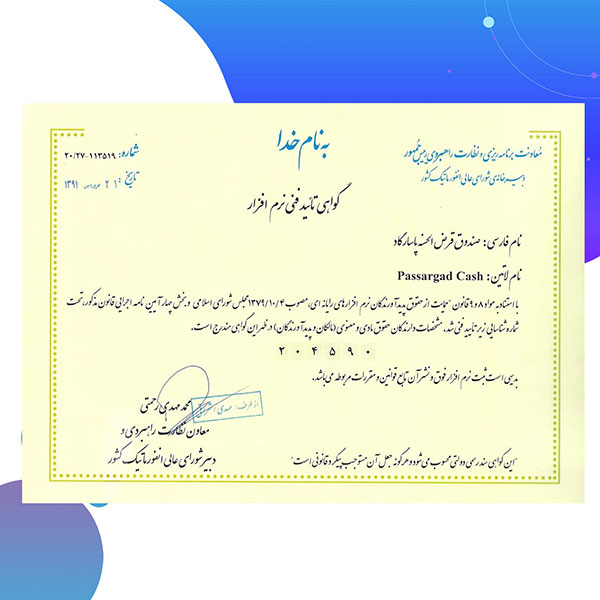 به نام خدا
معاونت برنامه‌ریزی و نظارت راهبردی رییس جمهور
دبیرخانه‌ی شورای عالی انفورماتیک کشور
شماره: ۲۰/۲۷-۱۱۳۵۱۹
تاریخ: ۲۱ فروردین ۱۳۹۱
گواهی تائید فنی نرم افزار
نام فارسی: صندوق قرض الحسنه پاسارگاد
نام لاتین: Passargad Cash
با استناد به مواد ۸ و ۹ قانون "حمایت از حقوق پدیدآورندگان نرم افزارهای رایانه ای، مصوب ۱۳۷۹/۱۰/۴ مجلس شورای اسلامی و بخش چهار آیین نامه اجرایی قانون مذکور، تحت
شماره شناسایی زیر تایید فنی شد. مشخصات دارندگان حقوق مادی و معنوی (مالکان و پدیدآورندگان) در ظهر این گواهی مندرج است.
۲۰۴۵۹۰
بدیهی است ثبت نرم افزار فوق و نشر آن تابع قوانین و مقررات مربوطه می‌باشد.
محمد مهدی رحمتی
از طرف: مهدی
معاون نظارت راهبردی و
دبیر شورای عالی انفورماتیک کشور
"این گواهی سند رسمی دولتی محسوب می شود و هرگونه جعل آن مستوجب پیگرد قانونی است"